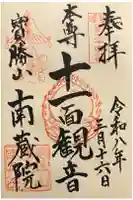 奉拝
令和八年
二月十六日
本尊
十一面観音
寳勝山
南蔵院